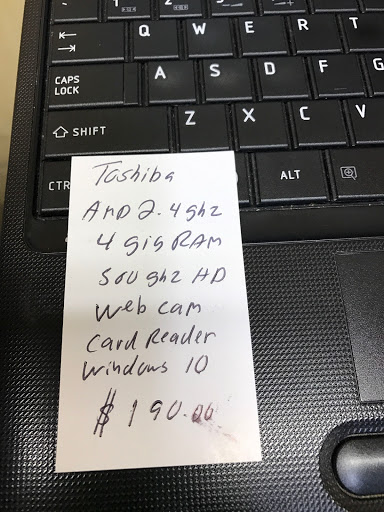 Q W E R T
CAPS LOCK A S D F G
SHIFT Z X C V
CTR ALT
Toshiba
AMD 2.4 ghz
4 gig RAM
500 ghz HD
web cam
Card Reader
Windows 10
$190.00